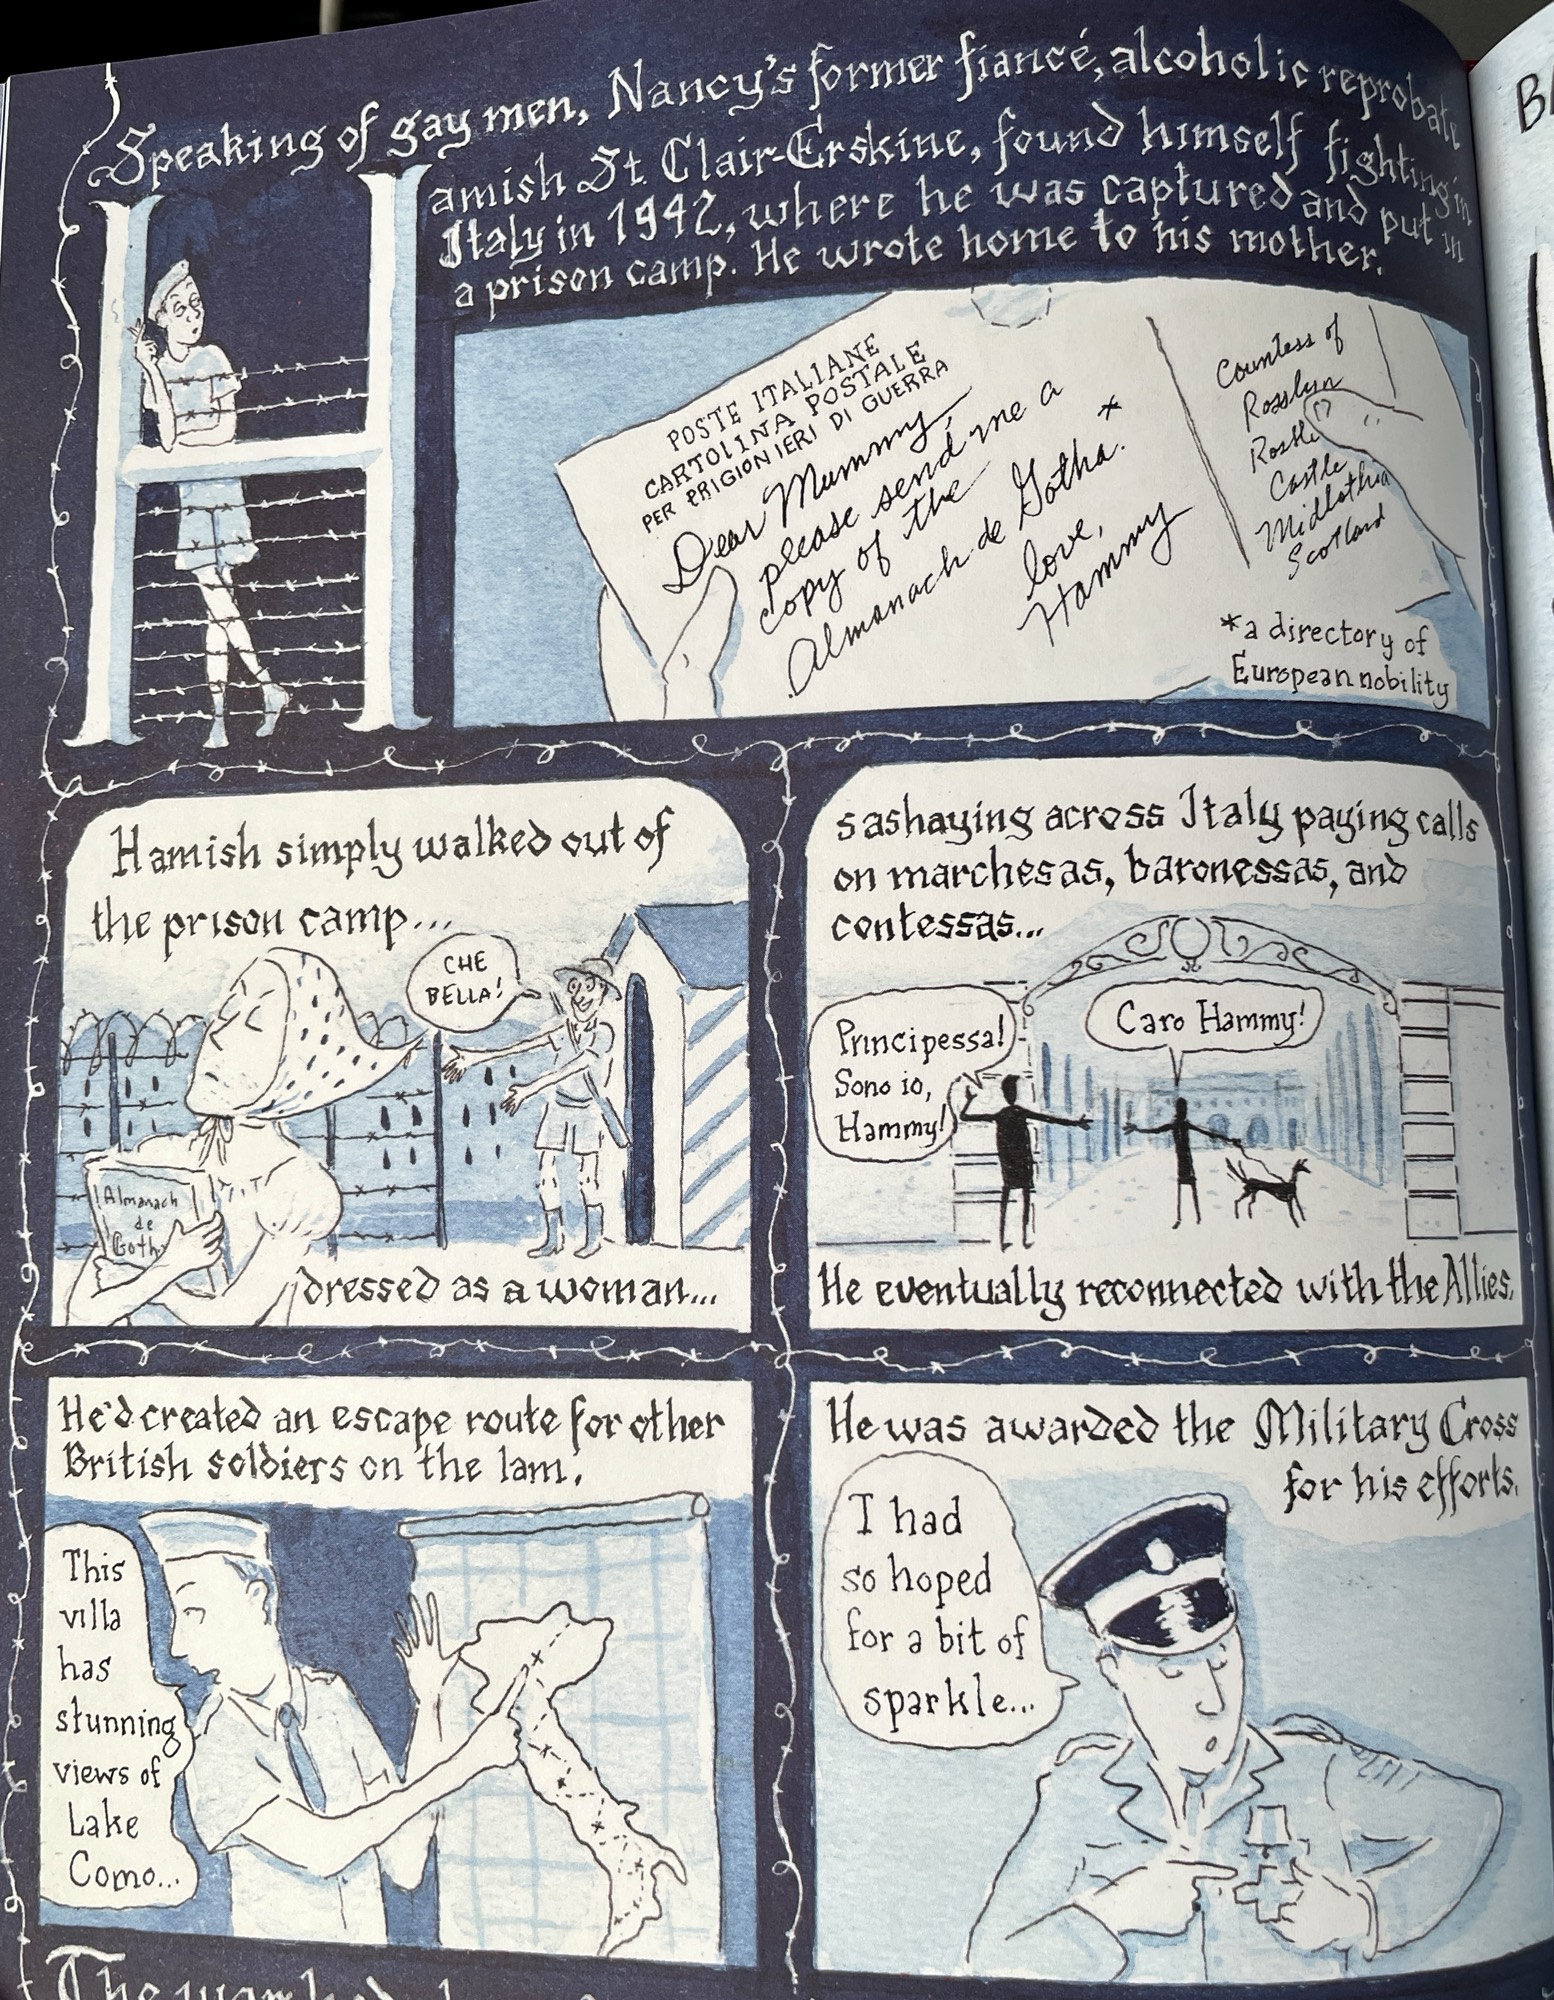 Speaking of gay men, Nancy's former fiancé, alcoholic reprobate
Hamish St. Clair-Erskine, found himself fighting in
Italy in 1942, where he was captured and put in
a prison camp. He wrote home to his mother.
POSTE ITALIANE
CARTOLINA POSTALE
PER PRIGIONIERI DI GUERRA
Dear Mummy,
please send me a
copy of the
Almanach de Gotha.*
love,
Hammy
Countess of
Rosslyn
Castle
Scotland
*a directory of
European nobility
Hamish simply walked out of
the prison camp...
CHE
BELLA!
Almanach
de
Goth
dressed as a woman...
sashaying across Italy paying calls
on marchesas, baronessas, and
contessas...
Principessa!
Sono io,
Hammy!
Caro Hammy!
He eventually reconnected with the Allies.
He'd created an escape route for other
British soldiers on the lam.
This
villa
has
stunning
views of
Lake
Como...
He was awarded the Military Cross
for his efforts.
I had
so hoped
for a bit of
sparkle...